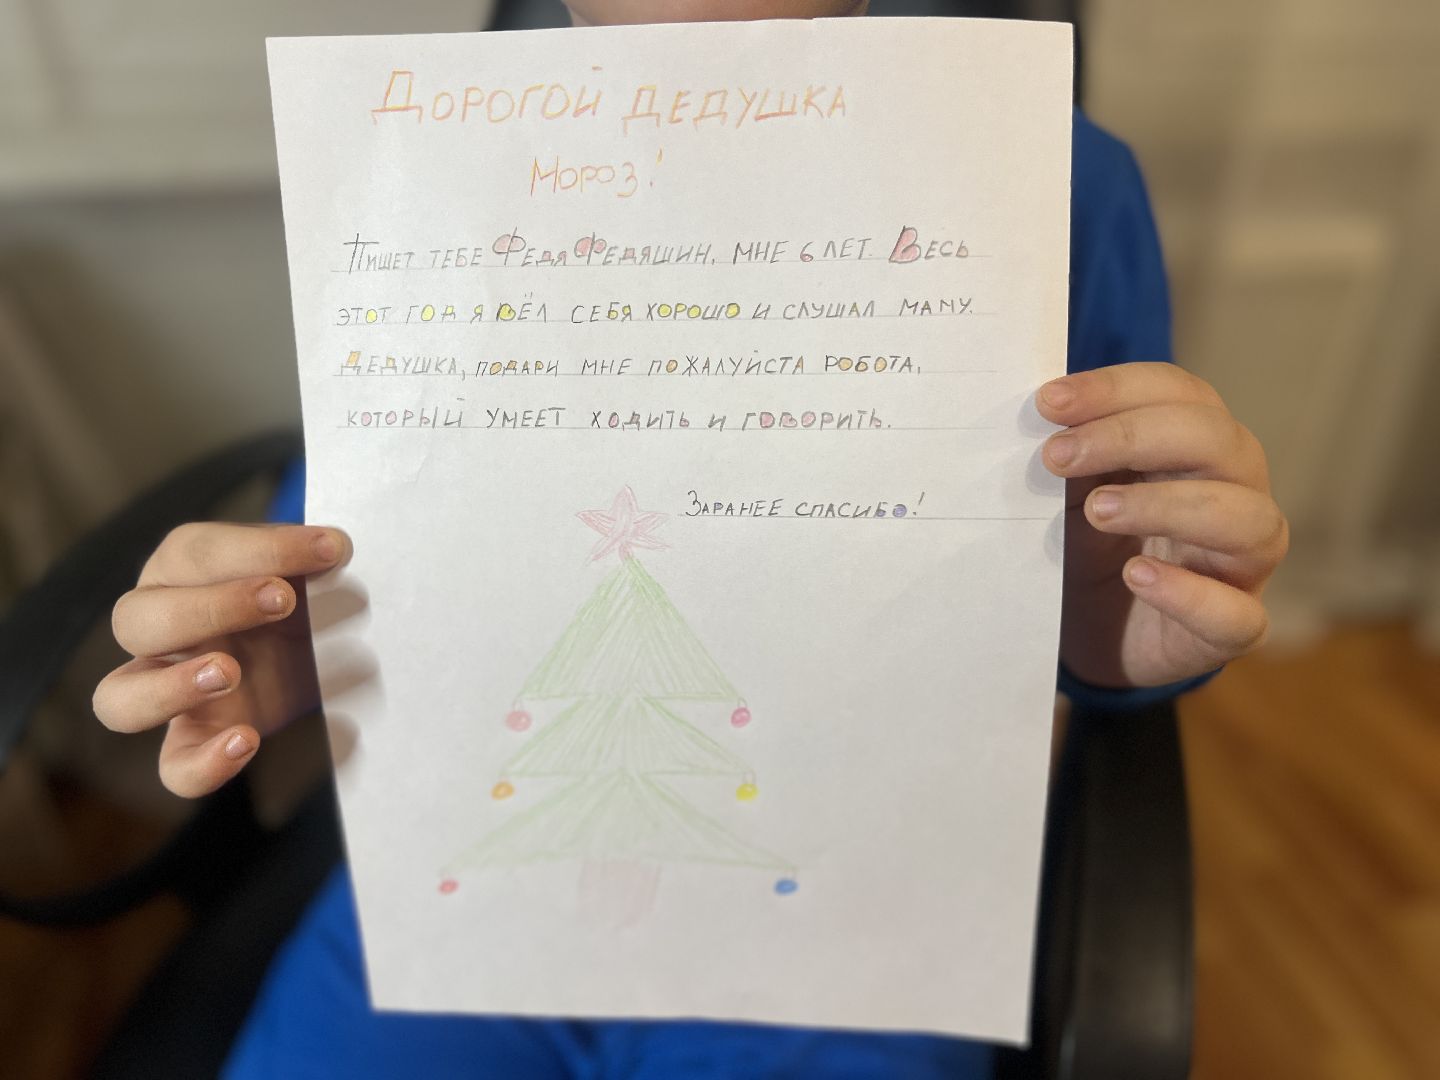 Дорогой дедушка
Мороз!
Пишет тебе Федя Федяшин, мне 6 лет. Весь
этот год я вёл себя хорошо и слушал маму.
Дедушка, подари мне пожалуйста робота,
который умеет ходить и говорить.
Заранее спасибо!